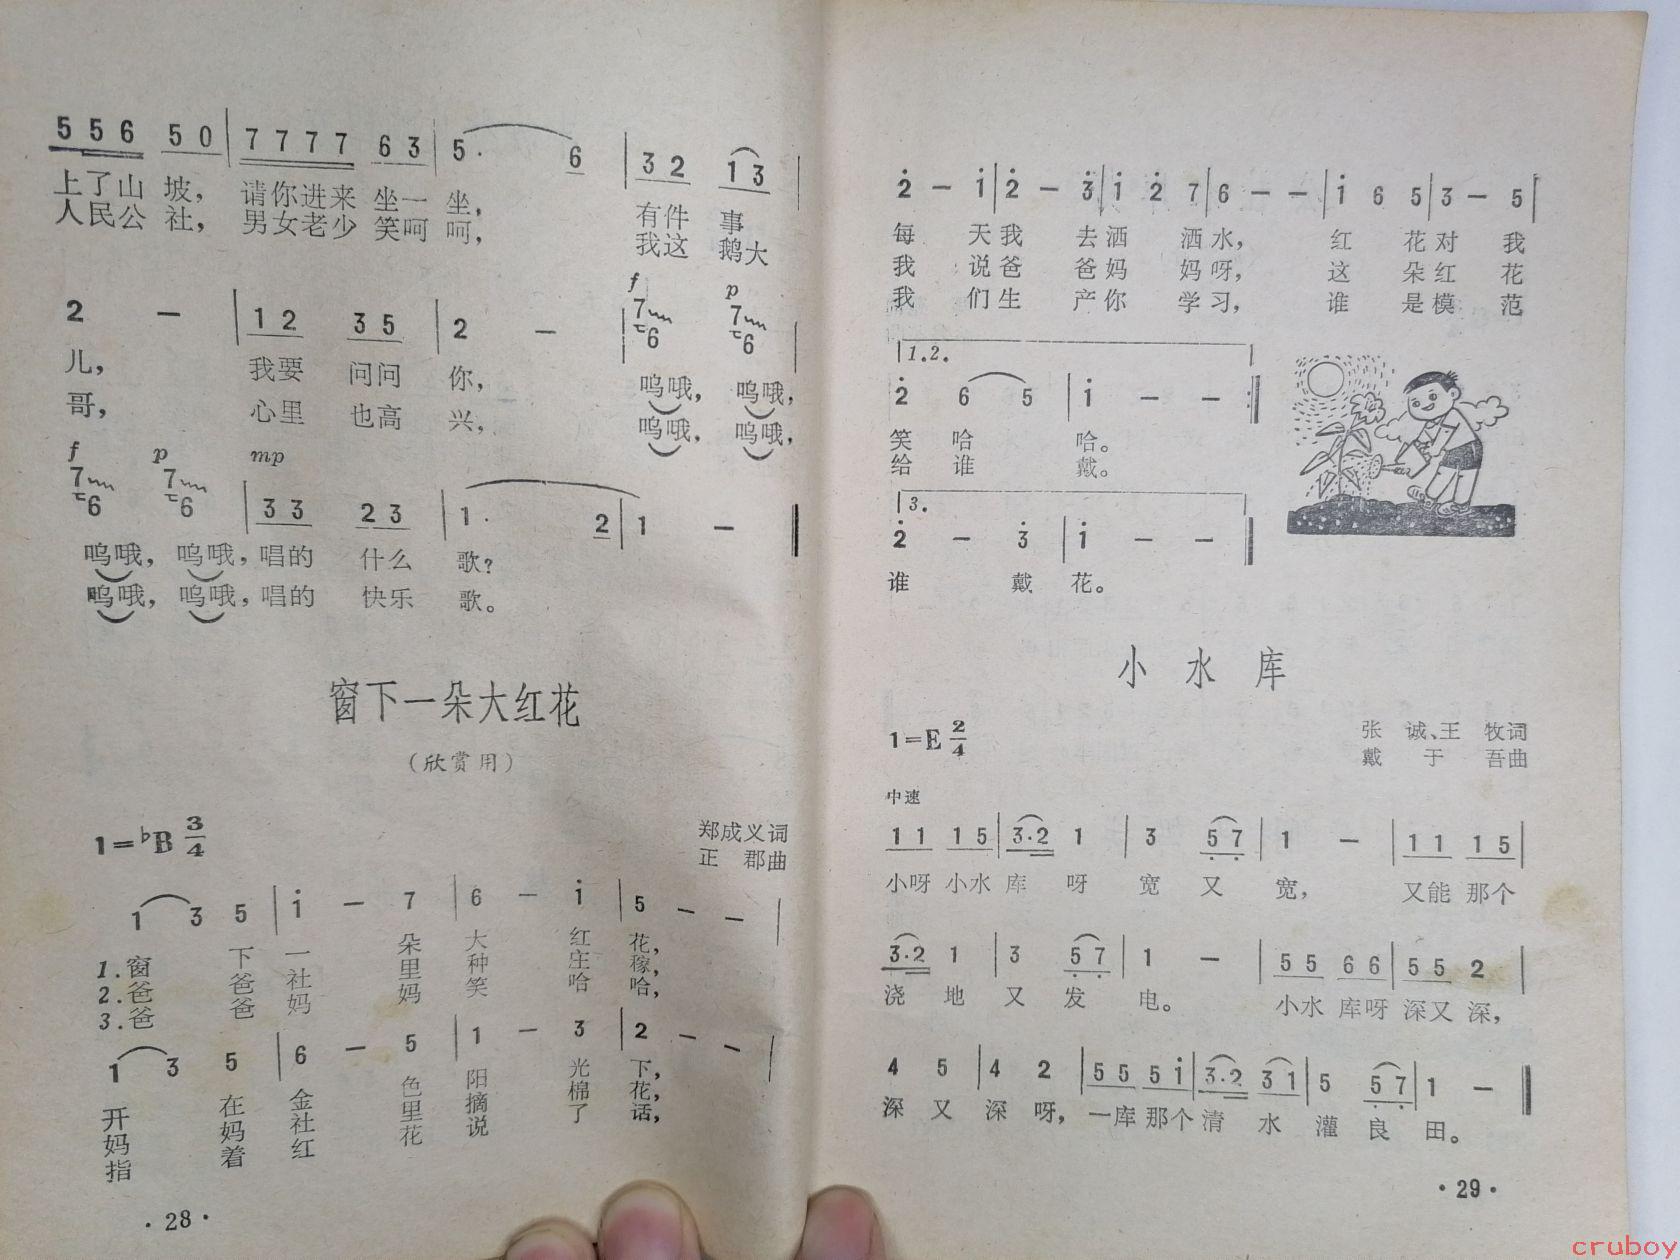 5 5 6 5 0 | 7 7 7 7 6 3 | 5· 6 | 3 2 1 3
上了山 坡， 请你进来 坐一 坐， 有件 事
人民公 社， 男女老少 笑呵 呵， 我这 鹅大
f p
2 — | 1 2 3 5 | 2 — | 7 6 7 6 |
儿， 我要 问问 你， 呜哦， 呜哦，
哥， 心里 也高 兴， 呜哦， 呜哦，
f p mp
7 6 7 6 | 3 3 2 3 | 1· 2 | 1 —
呜哦， 呜哦， 唱的 什么 歌？
呜哦， 呜哦， 唱的 快乐 歌。
窗下一朵大红花
（欣赏用）
1=♭B 3/4
郑成义词
正 郡曲
1 3 5 | i — 7 | 6 — i | 5 — — |
1.窗 下 一 朵 大 红 花，
2.爸 爸 社 里 种 庄 稼，
3.爸 爸 妈 妈 笑 哈 哈，
1 3 5 | 6 — 5 | 1 — 3 | 2 — — |
开 在 金 色 阳 光 下，
妈 妈 社 里 摘 棉 花，
指 着 红 花 说 了 话，
·28·
2 — i | 2 — 3 | i 2 7 | 6 — — | i 6 5 | 3 — 5 |
每 天 我 去 洒 洒 水， 红 花 对 我
我 说 爸 爸 妈 妈 呀， 这 朵 红 花
我 们 生 产 你 学 习， 谁 是 模 范
1.2.
2 6 5 | i — — :|
笑 哈 哈。
给 谁 戴。
3.
2 — 3 | i — —
谁 戴 花。
小 水 库
1=E 2/4
张 诚、王 牧词
戴 于 吾曲
中速
1 1 1 5 | 3·2 1 | 3 5 7 | 1 — | 1 1 1 5 |
小呀 小水 库 呀 宽 又 宽， 又能 那个
3·2 1 | 3 5 7 | 1 — | 5 5 6 6 | 5 5 2 |
浇 地 又 发 电。 小水 库呀 深又 深，
4 5 | 4 2 | 5 5 5 i | 3·2 3 1 | 5 5 7 | 1 —
深 又 深 呀， 一库 那个 清 水 灌 良 田。
·29·
cruboy